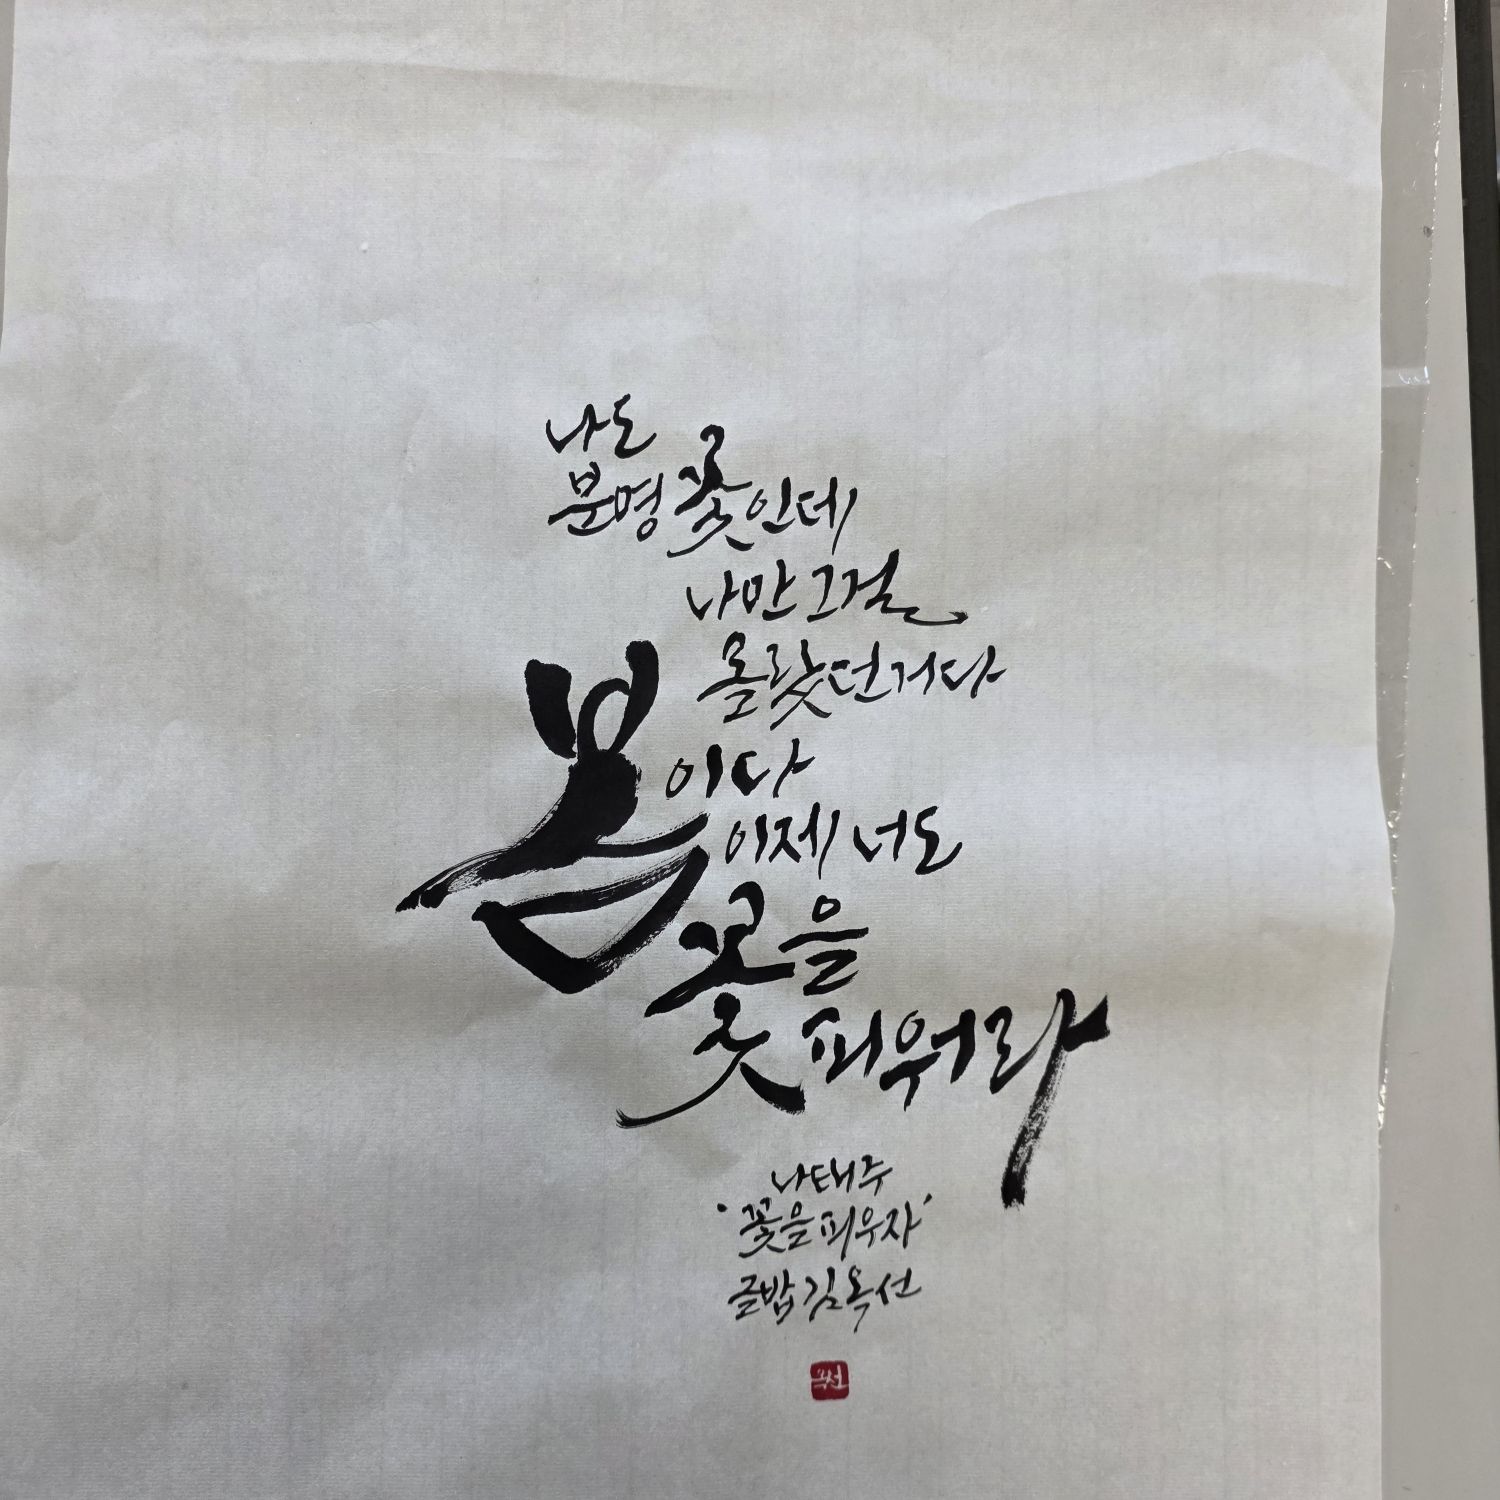 나도
분명 꽃인데
나만 그걸
몰랐던거다
봄이다
이제 너도
꽃을
피워라
나태주
'꽃을 피우자'
글밥 김옥선
옥선